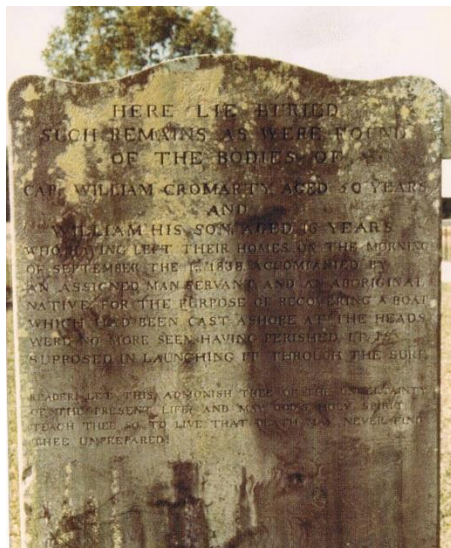 HERE LIE BURIED
SUCH REMAINS AS WERE FOUND
OF THE BODIES OF
CAP. WILLIAM CROMARTY, AGED 50 YEARS
AND
WILLIAM HIS SON, AGED 16 YEARS
WHO HAVING LEFT THEIR HOMES ON THE MORNING
OF SEPTEMBER THE 1ST, 1838, ACCOMPANIED BY
AN ASSIGNED MAN SERVANT, AND AN ABORIGINAL
NATIVE, FOR THE PURPOSE OF RECOVERING A BOAT
WHICH HAD BEEN CAST ASHORE AT THE HEADS,
WERE NO MORE SEEN, HAVING PERISHED, IT IS
SUPPOSED IN LAUNCHING IT THROUGH THE SURF.
READER! LET THIS ADMONISH THEE OF THE UNCERTAINTY
OF THE PRESENT LIFE; AND MAY GOD'S HOLY SPIRIT
TEACH THEE SO TO LIVE THAT DEATH MAY NEVER FIND
THEE UNPREPARED!